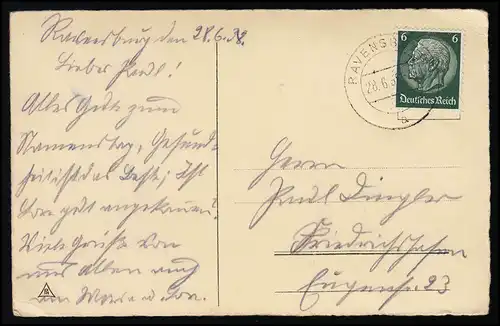 Ravensburg den 28.6.38.
Lieber Paul!
Alles Gute zum
Namenstag, Gesund-
heit ist das Beste; Ist
gut angekommen!
Viele Grüße von
uns Allen auch
RAVENSB
28.6.3
6 6
Deutsches Reich
Herrn
Paul Dingler
Friedrichshafen
Eugenstr. 23